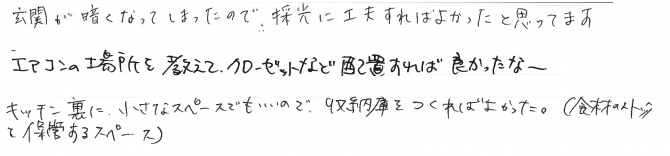 玄関が暗くなってしまったので、採光に工夫すればよかったと思ってます
エアコンの場所を考えて、クローゼットなど配置すれば良かったなー
キッチン裏に、小さなスペースでもいいので、収納庫をつくればよかった。(食材のストック
を保管するスペース)